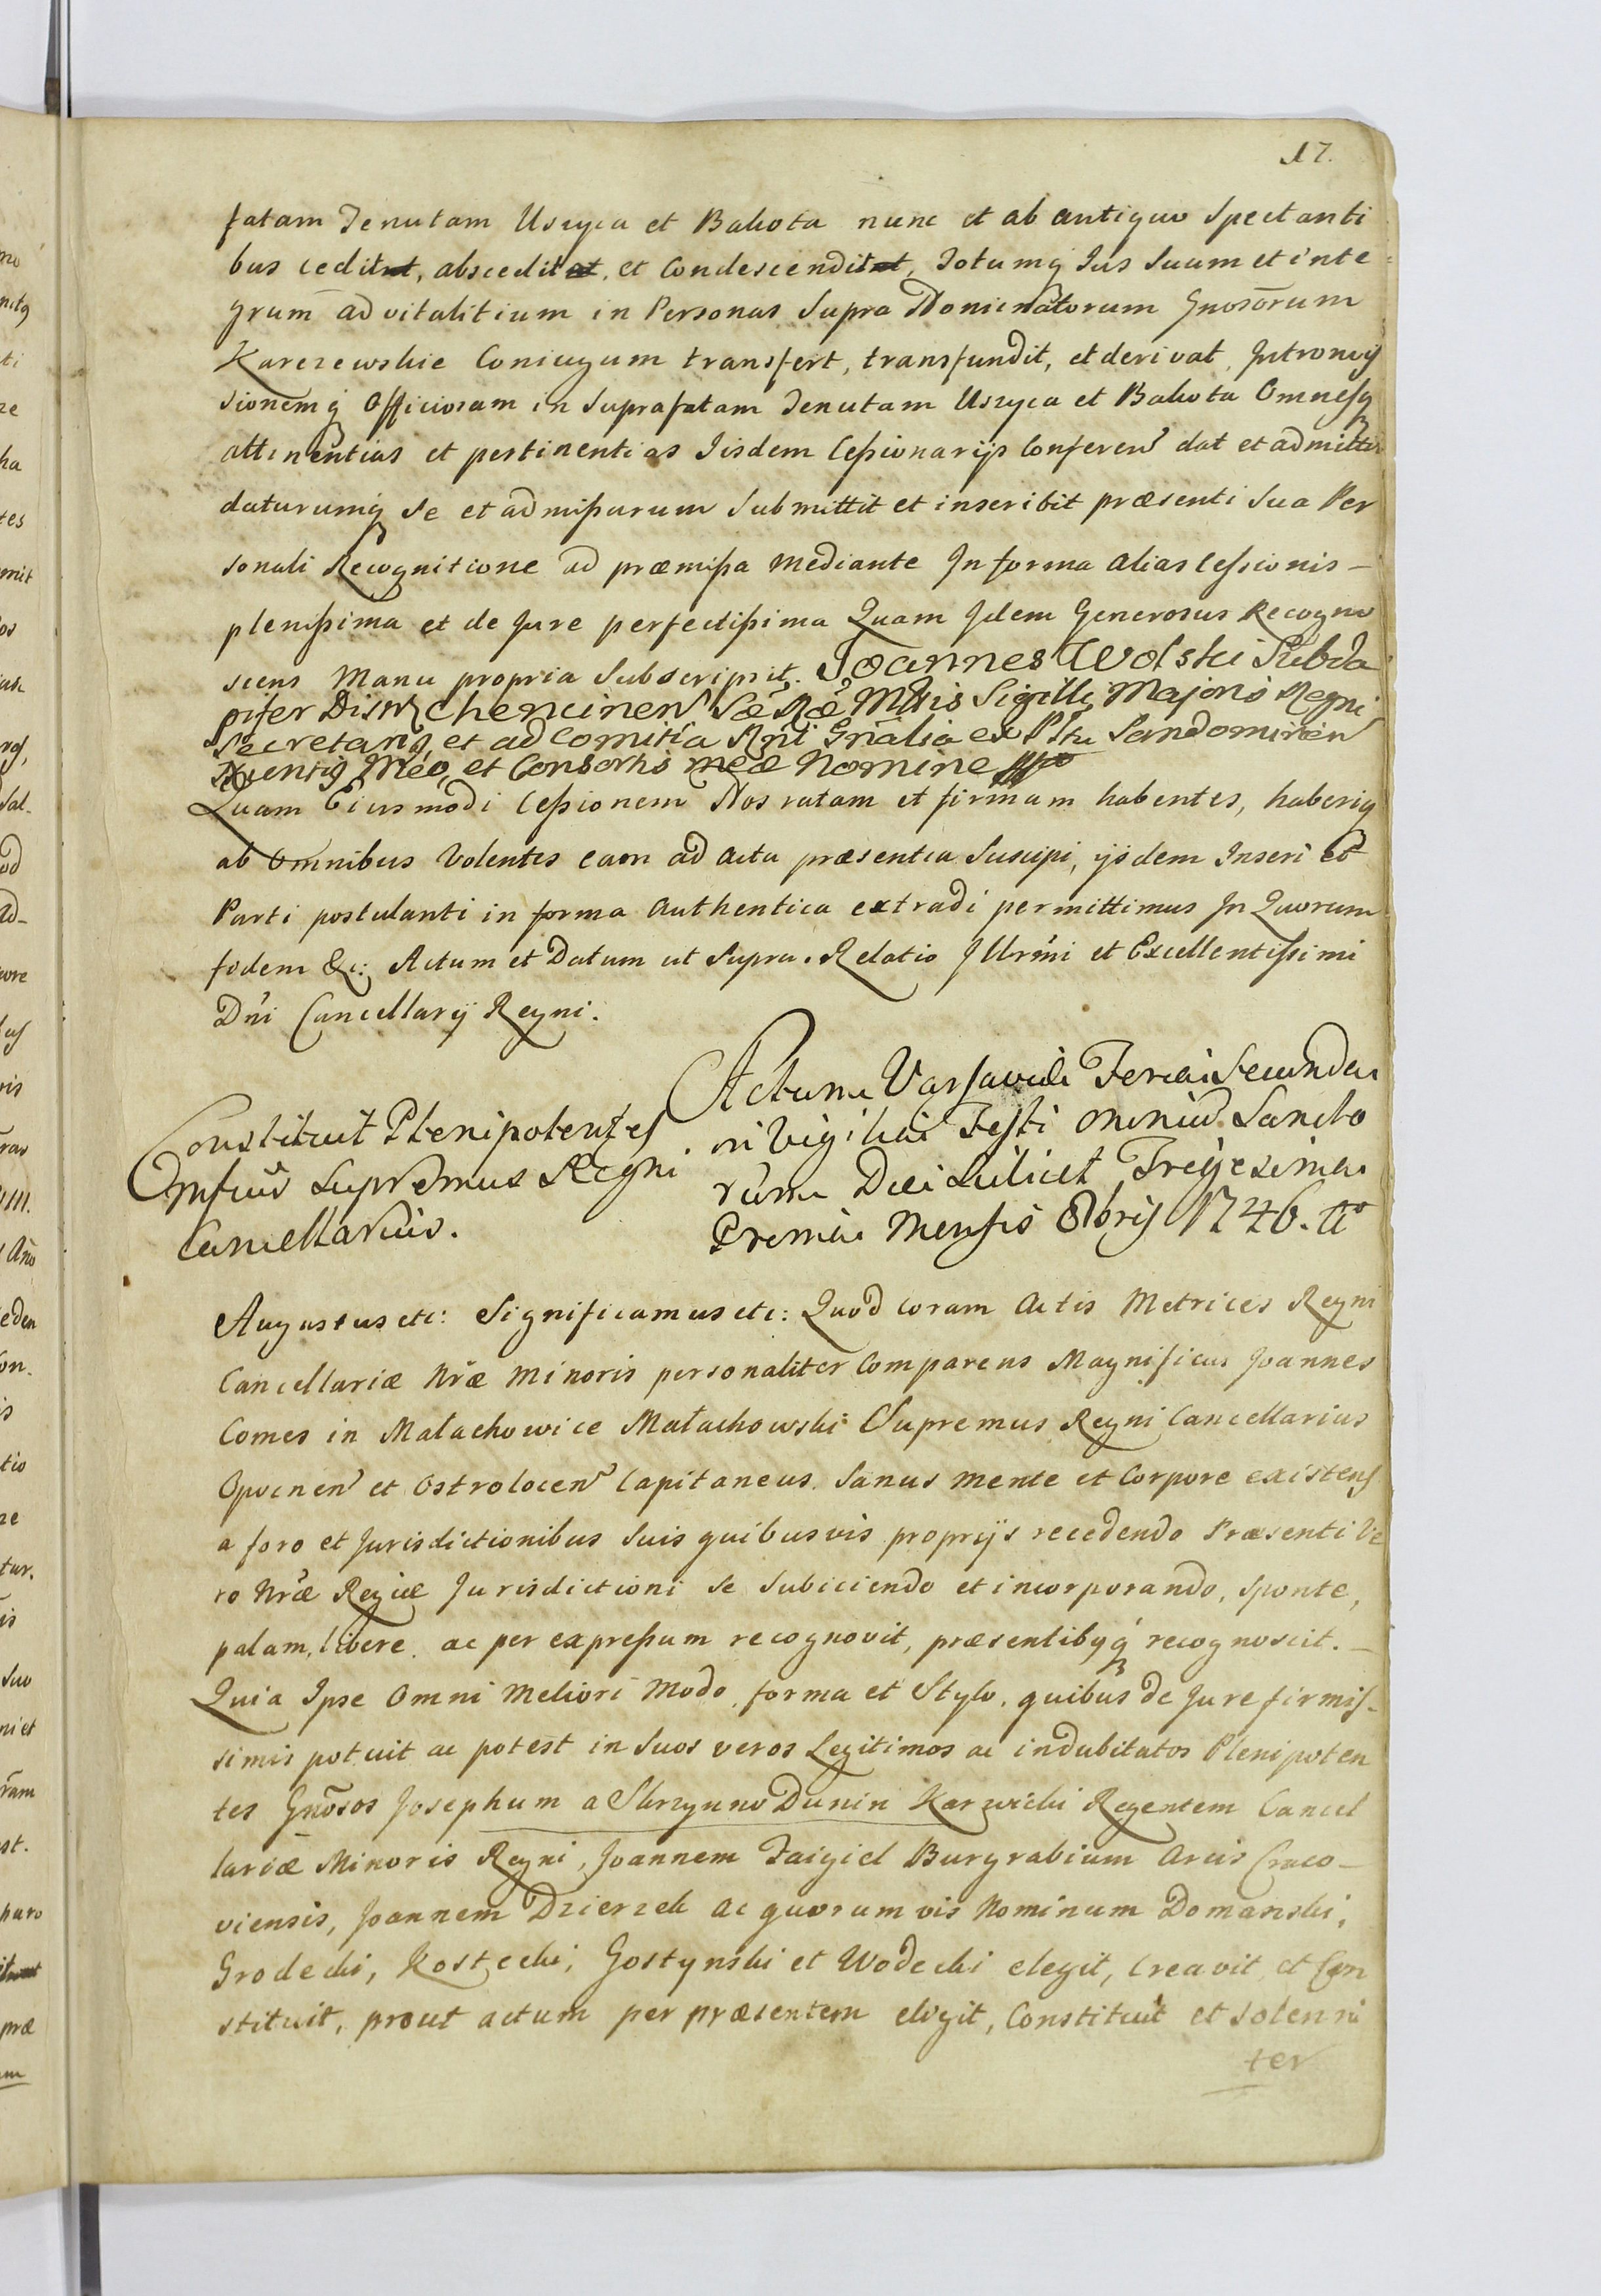 17.
fatam Tenutam Uszyca et Bakota nunc et ab antiquo Spectanti
bus cedit, abscedit, et Condescendit, Totumq Jus Suum et inte
grum advitalitium in Personas Supra Nominatorum Gnosōrum
Karczewskie Coniugum transfert, transfundit, et derivat, Intromis
sionemq Officiosam in Suprafatam Tenutam Uszyca et Bakota Omnesq
attinentias et pertinentias Iisdem Cessionarijs Conferen dat et admittit
daturumq Se et admissurum Submittit et inscribit præsenti Sua Per
sonali Recognitione ad præmissa mediante In forma alias Cessionis –
plenissima et de Jure perfectissima Quam Idem Generosus Recogno
scens Manu propria Subscripsit. Joannes Wolski Subda
pifer Distr Chencinen Sæ Ræ Mttis Sigilli Majoris Regni
Secretariq et ad Comitia Rni Gnãlia ex Pltu Sandomirien
Nuentiq Meo, et Consortis meæ Nomine
Quam Eiusmodi Cessionem Nos ratam et firmam habentes, haberiq
ab Omnibus Volentes eam ad acta præsentia Suscipi, ijsdem Inseri et
Parti postulanti in forma Authentica extradi permittimus In Quorum
fidem &c: Actum et Datum ut Supra. Relatio Illrmi et Excellentissimi
Dni Cancellarij Regni.
Constituit Plenipotentes
Omfius Supremus Regni
Cancellarius.
Actum Varsaviæ Feria Secunda
in Vigilia Festi Omniũ Sancto
rum Die Scilicet Trigesima
Prima Mensis 8bris 1746. Ao
Augustus etc: Significamus etc: Quod coram Actis Metrices Regni
Cancellariæ Nræ Minoris personaliter Comparens Magnificus Joannes
Comes in Małachowice Małachowski Supremus Regni Cancellarius
Opocnen et Ostrolocen Capitaneus. Sanus mente et Corpore existens
a foro et Jurisdictionibus Suis quibusvis proprijs recedendo Præsenti Ve
ro Nræ Regiæ Jurisdictioni Se Subiciendo et incorporando, Sponte,
palam, libere, ac per expressum recognovit, præsentibusq recognoscit. –
Quia Ipse Omni Meliori Modo, forma et Stylo, quibus de Jure firmis-
simis potuit ac potest in Suos veros Legitimos ac indubitatos Plenipoten
tes Gnõsos Josephum a Skrzynno Dunin Karwicki Regentem Cancel
lariæ Minoris Regni, Joannem Faigiel Burgrabium Arcis Craco–
viensis, Joannem Dzierzek ac quorumvis Nominum Domanski,
Grodecki, Kostecki, Gostynski et Wodecki elegit, Creavit, et Con
stituit, prout actum per præsentem eligit, Constituit et Solenni
ter